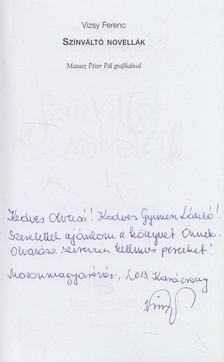 Vizsy Ferenc
SZÍNVÁLTÓ NOVELLÁK
Matusz Péter Pál grafikáival
Kedves Olvasó! Kedves Gyimesi László!
Szeretettel ajánlom a könyvet Önnek.
Olvasása szerezzen kellemes perceket!
Mosonmagyaróvár, 2013 Karácsony